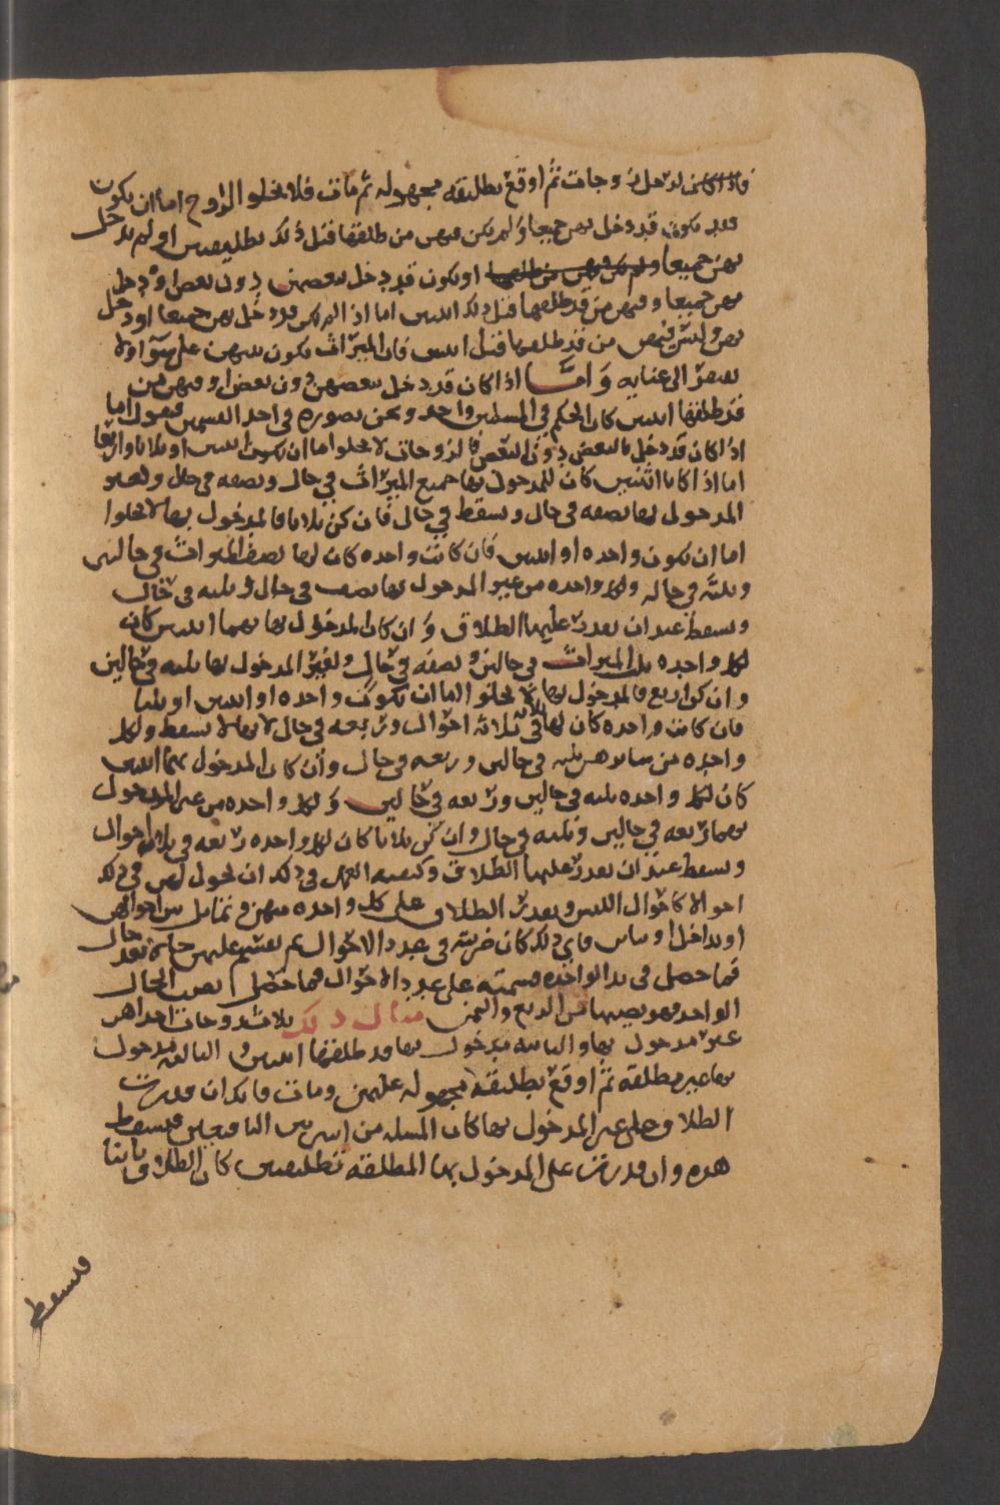 فاذا كان لرجل زوجات ثم اوقع تطليقه مجهوله ثم مات فلا يخلوا الزوج اما ان يكون
قد دخل بهن جميعا ولم يكن فيهن من طلقها قبل ذلك تطليقتين او لم يدخل
بهن جميعا او يكون قد دخل ببعضهن دون بعض او دخل
بهن جميعا وفيهن من قد طلقها قبل ذلك اثنتين اما اذا لم يكن قد دخل بهن جميعا او دخل
بهن وليس فيهن من قد طلقها قبل اثنتين فان الميراث يكون بينهن على سوا ولا
يفتقر الى عنايه واما اذا كان قد دخل ببعضهن دون بعض او فيهن من
قد طلقها اثنتين كان الحكم في المسلتين واحد ونحن نصوره في احد القسمين فنقول اما
اذا كان قد دخل بالبعض دون البعض فالزوجات لا يخلوا اما ان يكون اثنتين او ثلاثا او اربعا
اما اذا كانا اثنتين كان للمدخول بها جميع الميراث في حال ونصفه في حال ولغير
المدخول بها نصفه في حال ويسقط في حال فان كن ثلاثا فالمدخول بها لا يخلوا
اما ان يكون واحده او اثنتين فان كانت واحده كان لها نصف الميراث في حالتين
وثلثه في حاله ولكل واحده من غير المدخول بها نصف في حال وثلثه في حال
ويسقط عند ان يقدر عليها الطلاق وان كان المدخول بها بهما اثنتين كان
لكل واحده ثلث الميراث في حالين ونصفه في حال ولغير المدخول بها ثلثه في حالين
وان كن اربع فالمدخول بها لا يخلوا اما ان يكون واحده او اثنتين او ثلثا
فان كانت واحده كان لها ثلاثه احوال وربعه في حال لانها لا يسقط ولكل
واحده من سايرهن ثلثه في حالين وربعه في حال وان كان المدخول بهما اثنتين
كان لكل واحده ثلثه في حالين وربعه في حالين ولكل واحده من غير المدخول
بهما ربعه في حالين وثلثه في حال وان كن ثلاثا كان لكل واحده ربعه في ثلاثه احوال
ويسقط عند ان يقدر عليها الطلاق وكيفيه العمل في ذلك ان تحول لهن في ذلك
احوالا كاحوال اللبس ويقدر الطلاق على كل واحده منهن وتماثل بين احوالهن
او تداخل او تباين فاي ذلك كان ضربته في عدد الاحوال ثم تقسم عليهن حاله بعد حال
فما حصل في يد الواحده قسمته على عدد الاحوال فما حصل نصيب الحال
الواحد فهو نصيبها من الربع والثمن مثال ذلك ثلاث زوجات احداهن
غير مدخول بها والثانيه مدخول بها قد طلقها اثنتين والثالثه مدخول
بها غير مطلقه ثم اوقع تطليقه مجهوله عليهن ومات فانك ان قدرت
الطلاق على غير المدخول بها كان المسله من اثنين للباقيتين ويسقط
هذه وان قدرت على المدخول بها المطلقه تطليقتين كان الطلاق باينا
ويسقط